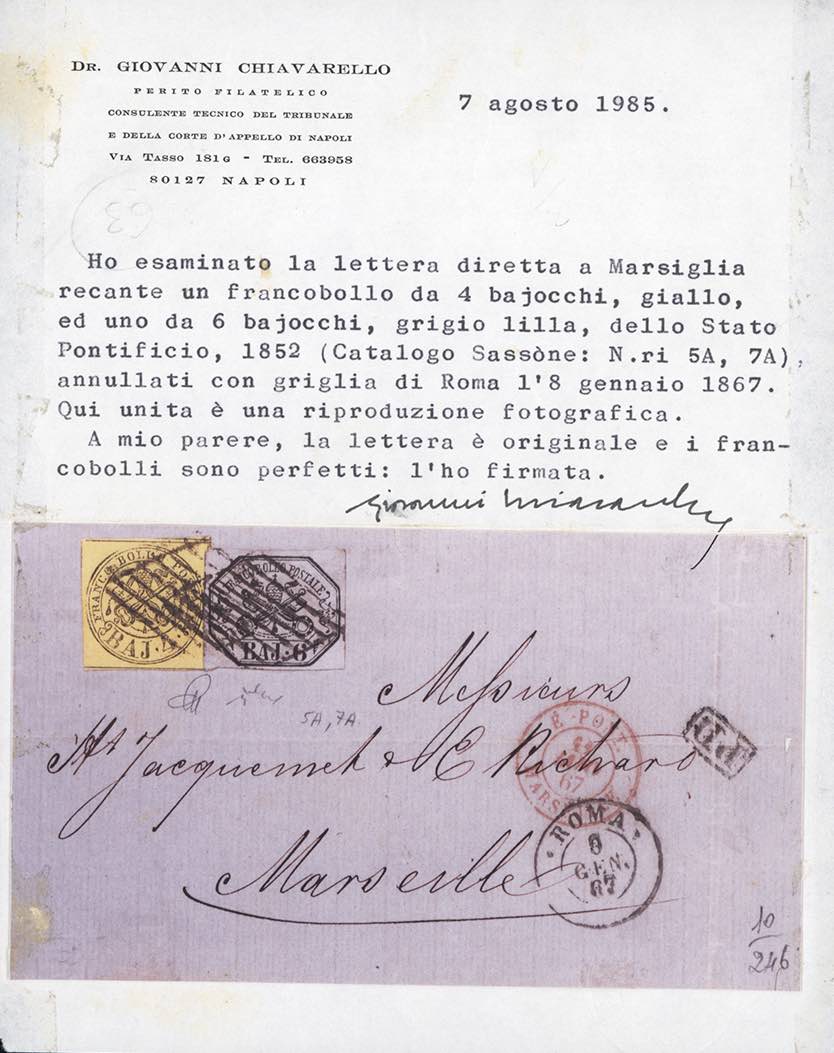 DR. GIOVANNI CHIAVARELLO
PERITO FILATELICO
CONSULENTE TECNICO DEL TRIBUNALE
E DELLA CORTE D'APPELLO DI NAPOLI
VIA TASSO 181G - TEL. 663958
80127 NAPOLI
7 agosto 1985.
63
Ho esaminato la lettera diretta a Marsiglia
recante un francobollo da 4 bajocchi, giallo,
ed uno da 6 bajocchi, grigio lilla, dello Stato
Pontificio, 1852 (Catalogo Sassòne: N.ri 5A, 7A),
annullati con griglia di Roma l'8 gennaio 1867.
Qui unita è una riproduzione fotografica.
A mio parere, la lettera è originale e i fran-
cobolli sono perfetti: l'ho firmata.
FRANCO BOLLO POSTALE
BAJ. 4.
FRANCO BOLLO POSTALE
BAJ. 6
5A, 7A
Messieurs
Hte Jacquemet & E Richard
Marseille
67
MARS
P.D.
ROMA
GEN.
67
10
246